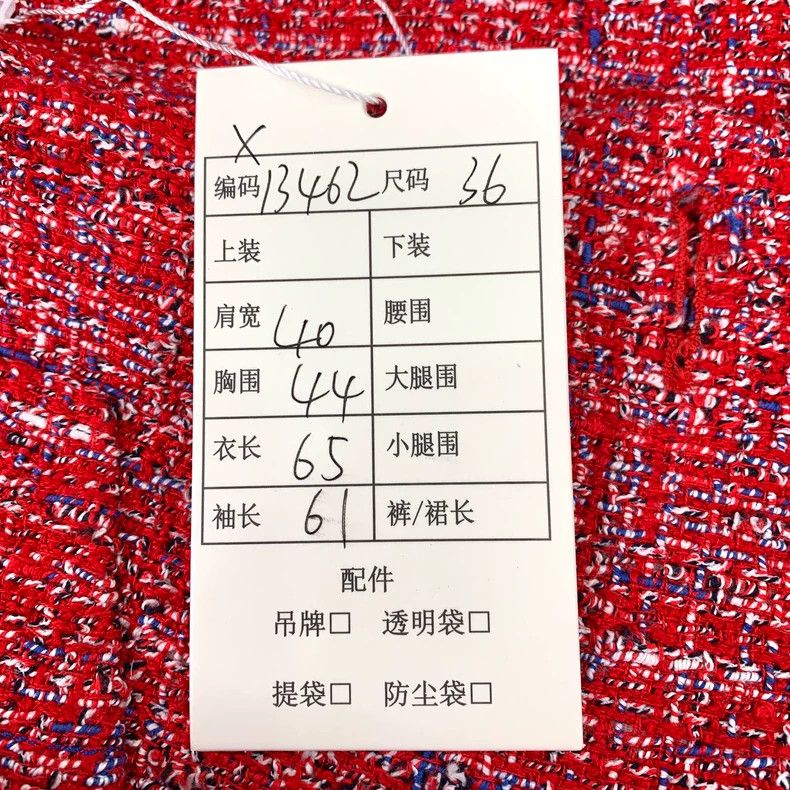 X
编码 13462 尺码 36
上装 下装
肩宽 40 腰围
胸围 44 大腿围
衣长 65 小腿围
袖长 61 裤/裙长
配件
吊牌□ 透明袋□
提袋□ 防尘袋□